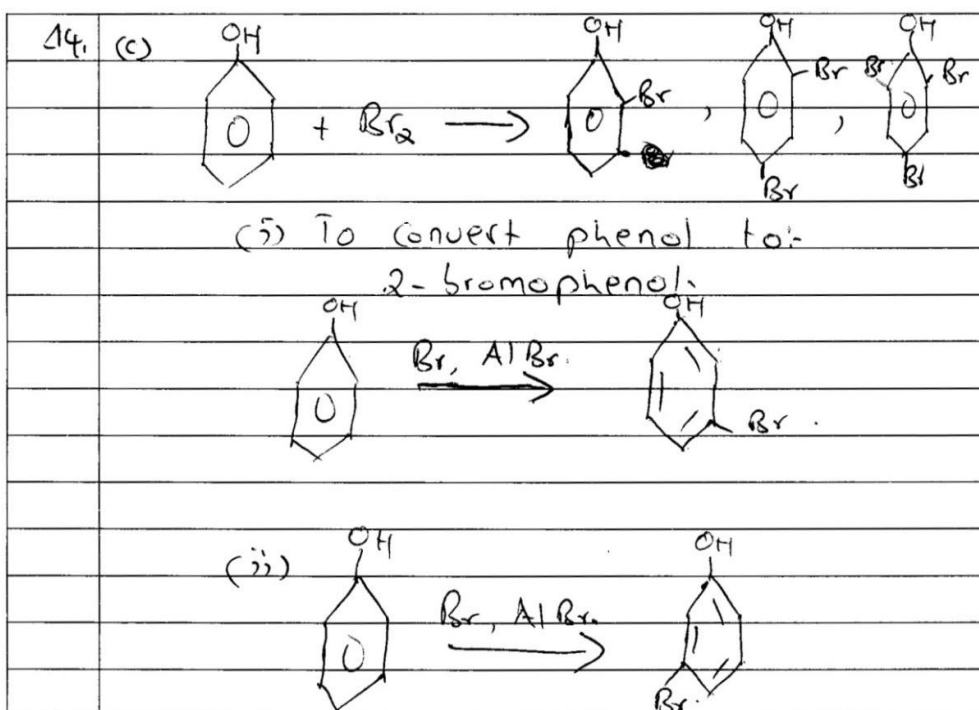 14. (c)
OH OH OH OH
+ Br2 → Br , Br , Br Br
Br Br
(i) To convert phenol to:-
2-bromophenol.
OH OH
Br, AlBr.
Br .
(ii) OH OH
Br, AlBr.
Br